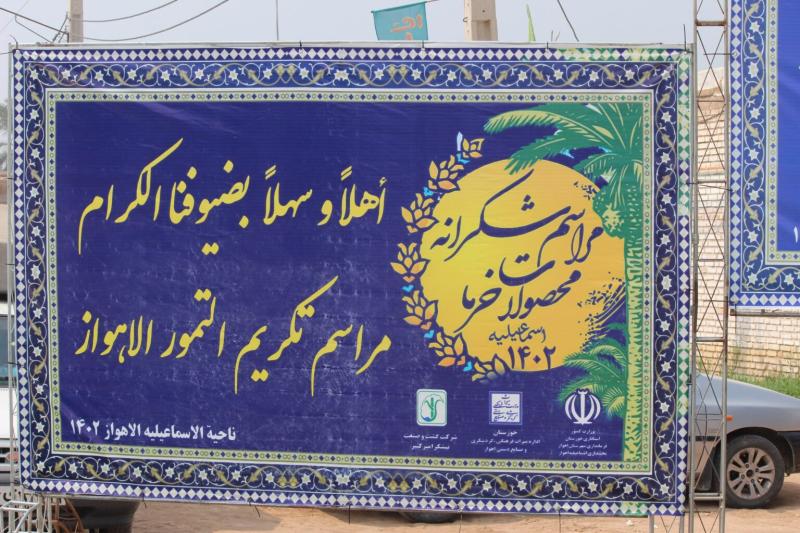 أهلاً و سهلاً بضيوفنا الكرام
مراسم تكريم التمور الاهواز
ناحية الاسماعيلية الاهواز ۱۴۰۲
مراسم شکرانه
محصولات خرما
اسماعیلیه
۱۴۰۲
شرکت کشت و صنعت
نیشکر امیرکبیر
خوزستان
اداره میراث فرهنگی، گردشگری
و صنایع دستی اهواز
وزارت کشور
استانداری خوزستان
فرمانداری شهرستان اهواز
بخشداری اسماعیلیه اهواز